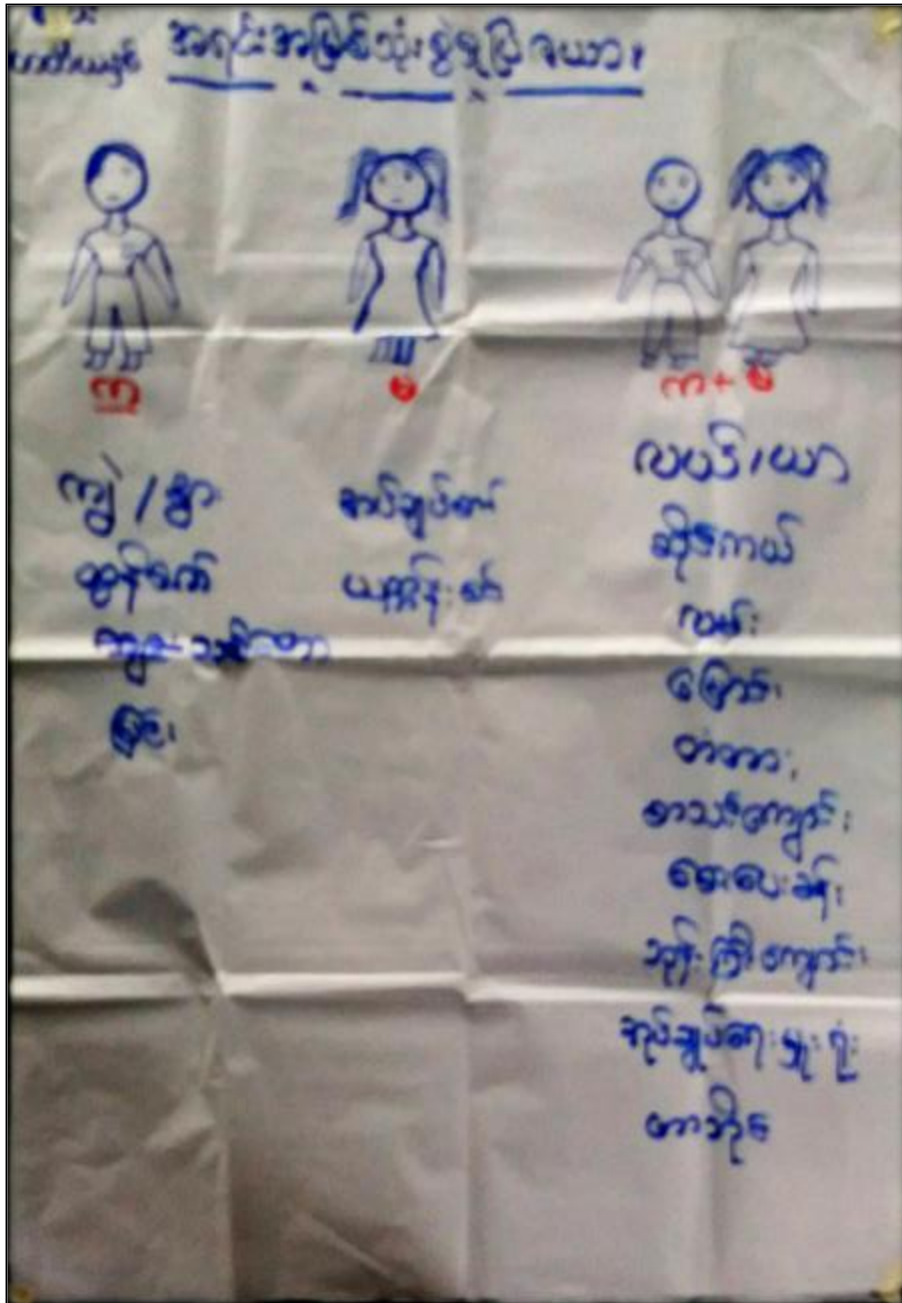 အရင်းအမြစ်သုံးစွဲမှုပြဇယား
ကျား
မ
ကျား + မ
ကျွဲ / နွား
ထွန်စက်
မြင်း
စက်ချုပ်စက်
ယက္ကန်းစင်
လယ်/ယာ
ဆိုင်ကယ်
လမ်း
မြောင်း
တံတား
စာသင်ကျောင်း
ဆေးပေးခန်း
ဘုန်းကြီးကျောင်း
အုပ်ချုပ်ရေးမှူးရုံး